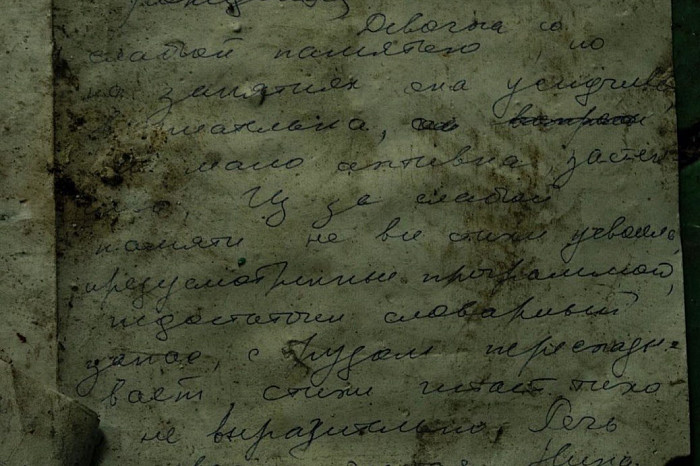 Девочка со
слабой памятью, но
на занятиях она усидчива,
мало активна, застен
Из за слабой
памяти не все стихи усвоила
предусмотренные программой,
недостаточен словарный
запас, с трудом пересказы-
вает, стихи читает тихо
не выразительно. Речь